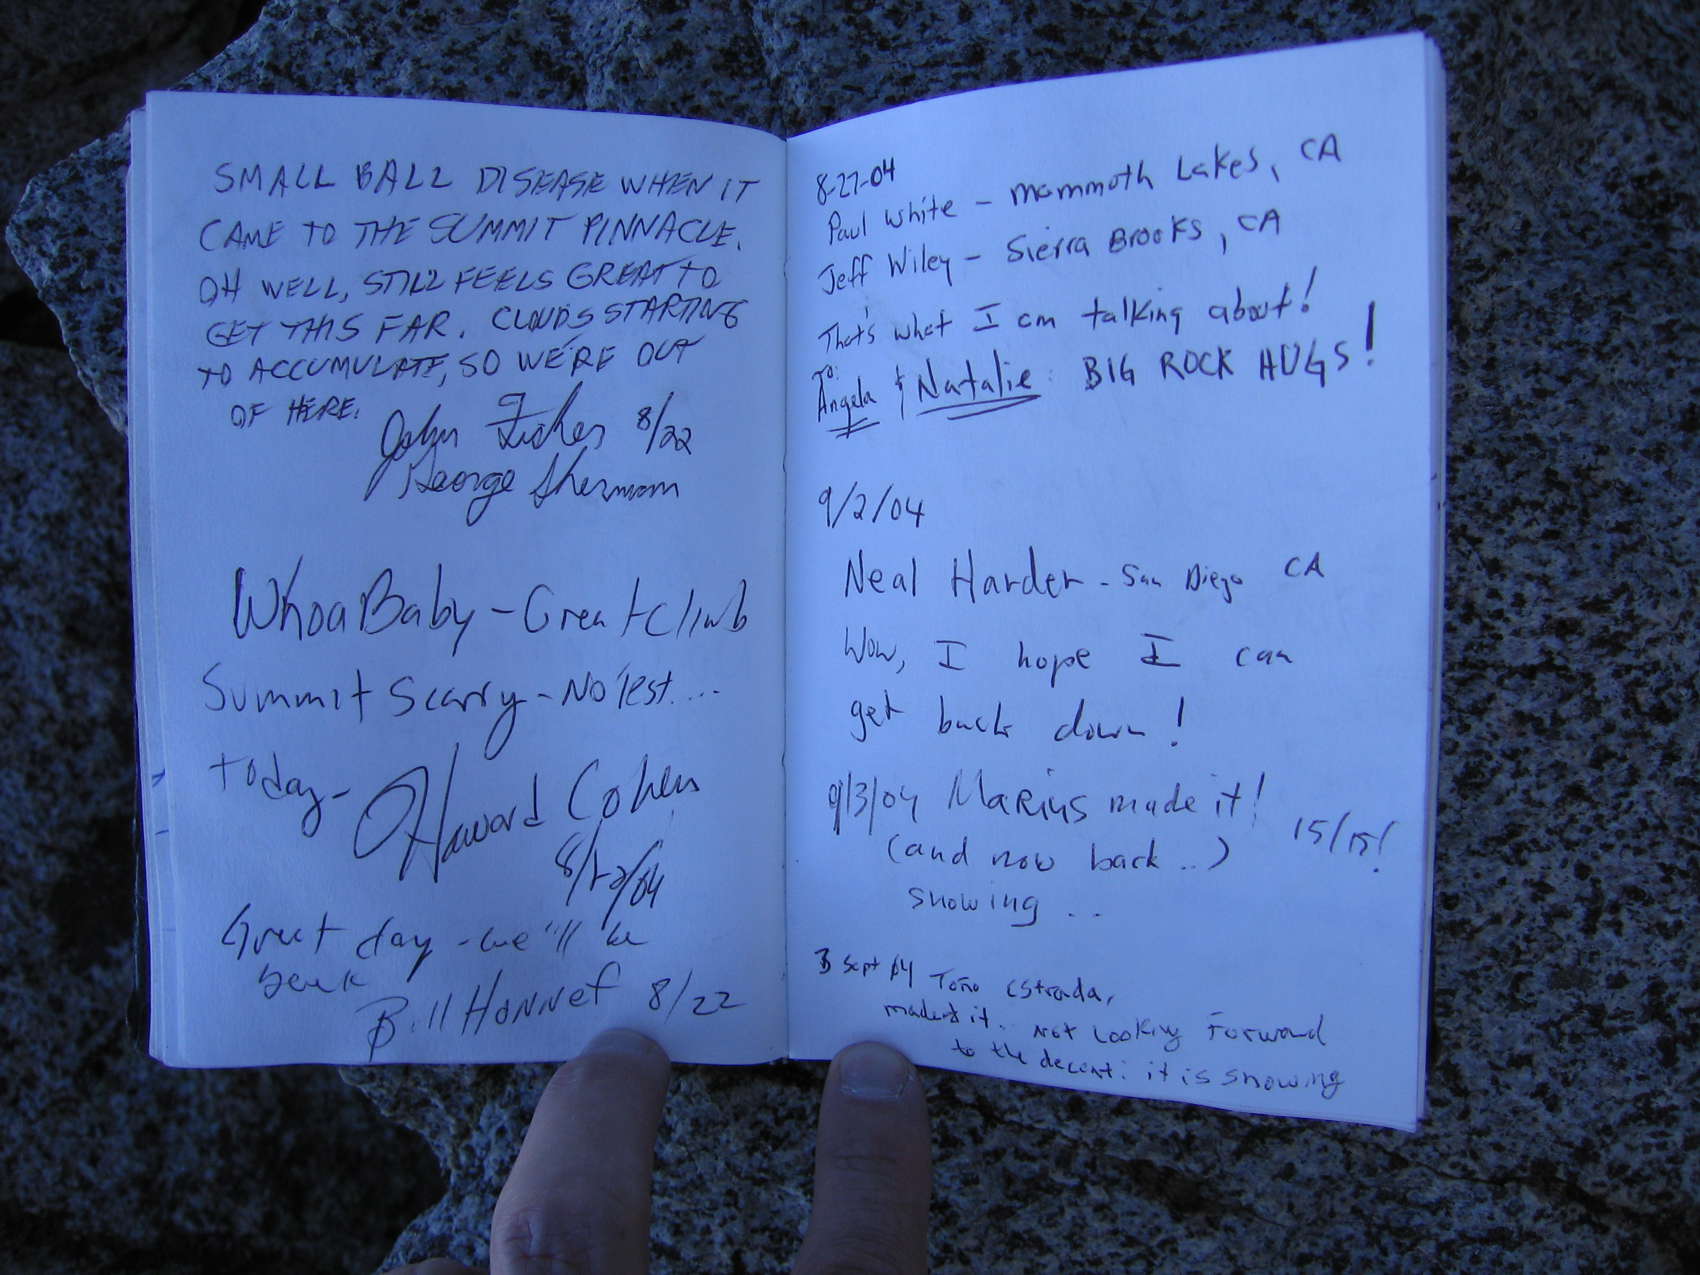 SMALL BALL DISEASE WHEN IT
CAME TO THE SUMMIT PINNACLE.
OH WELL, STILL FEELS GREAT TO
GET THIS FAR. CLOUDS STARTING
TO ACCUMULATE, SO WE'RE OUT
OF HERE.
John Fisher 8/22
George Sherman
Whoa Baby - Great climb
Summit Scarry - No Test...
Today -
Howard Cohen
8/22/04
Great day - we'll be
back
Bill Honnef 8/22
8-27-04
Paul White - Mammoth Lakes, CA
Jeff Wiley - Sierra Brooks, CA
That's what I am talking about!
TO:
Angela & Natalie: BIG ROCK HUGS!
9/2/04
Neal Harder - San Diego CA
Wow, I hope I can
get back down!
9/3/04 Marius made it!
15/15!
(and now back..)
snowing ..
3 Sept 04 Toño Estrada,
made it. Not Looking Forward
to the decent: it is snowing